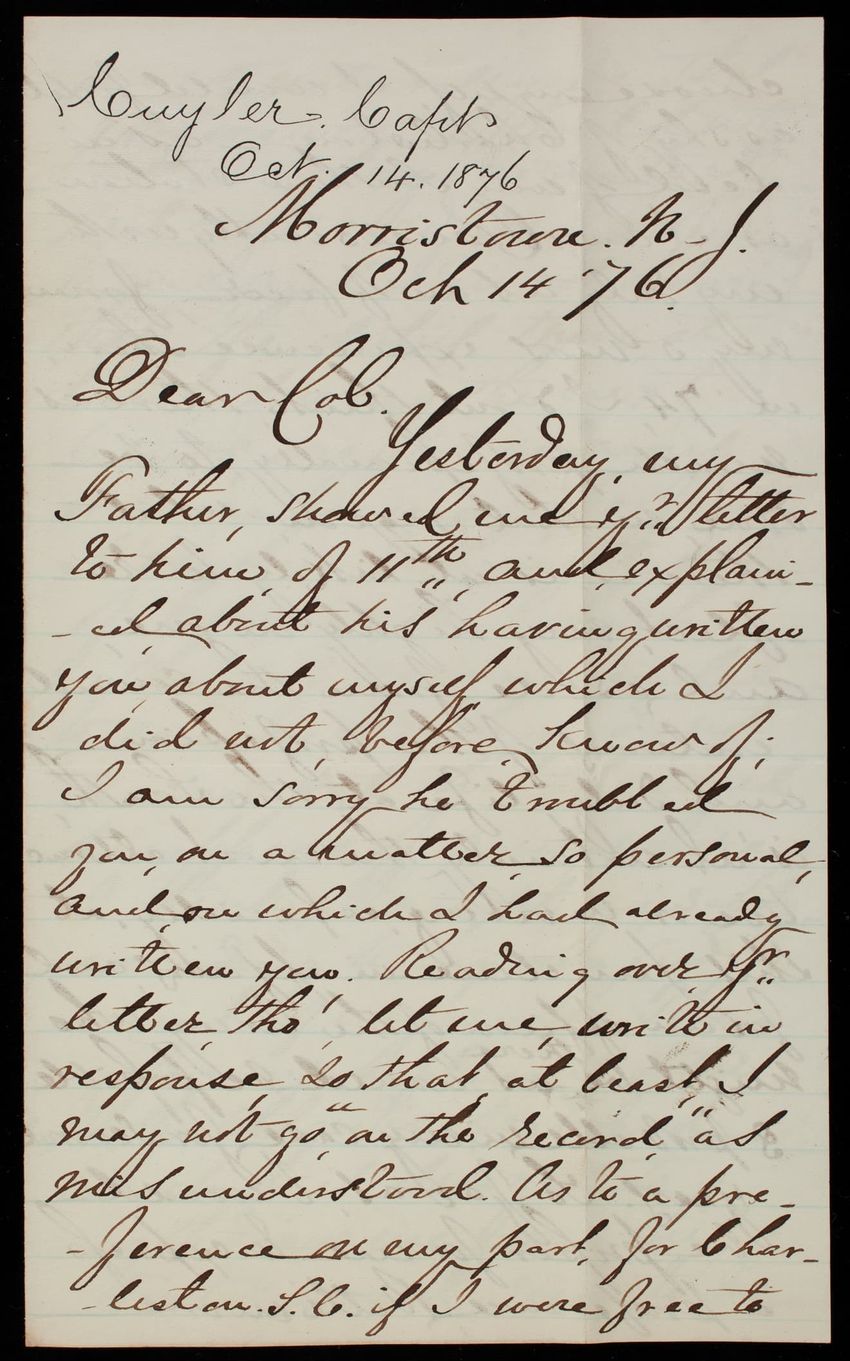 Cuyler. Capt
Oct. 14. 1876
Morristown. N-J.
Oct 14 '76.
Dear Col.
Yesterday, my
Father, showed me yr letter
to him, of 11th, and explain-
-ed about his having written
you, about myself, which I
did not, before, know of;
I am sorry he troubled
you, on a matter, so personal,
and, on which I had already
written you. Reading over yr
letter, tho', let me, write in
response, so that, at least, I
may not go "on the record," as
misunderstood. As to a pre-
-ference on my part, for Char-
-leston. S.C. if I were free to